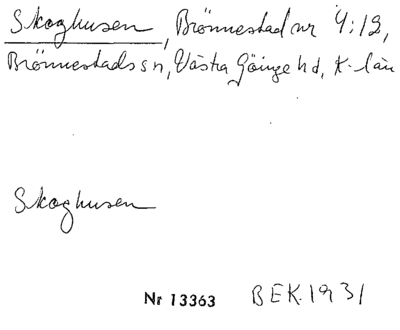 Skoghusen, Brönnestad nr 4:12,
Brönnestads sn, Västra Göinge hd, K-län
Skoghusen
Nr 13363 BEK. 1931